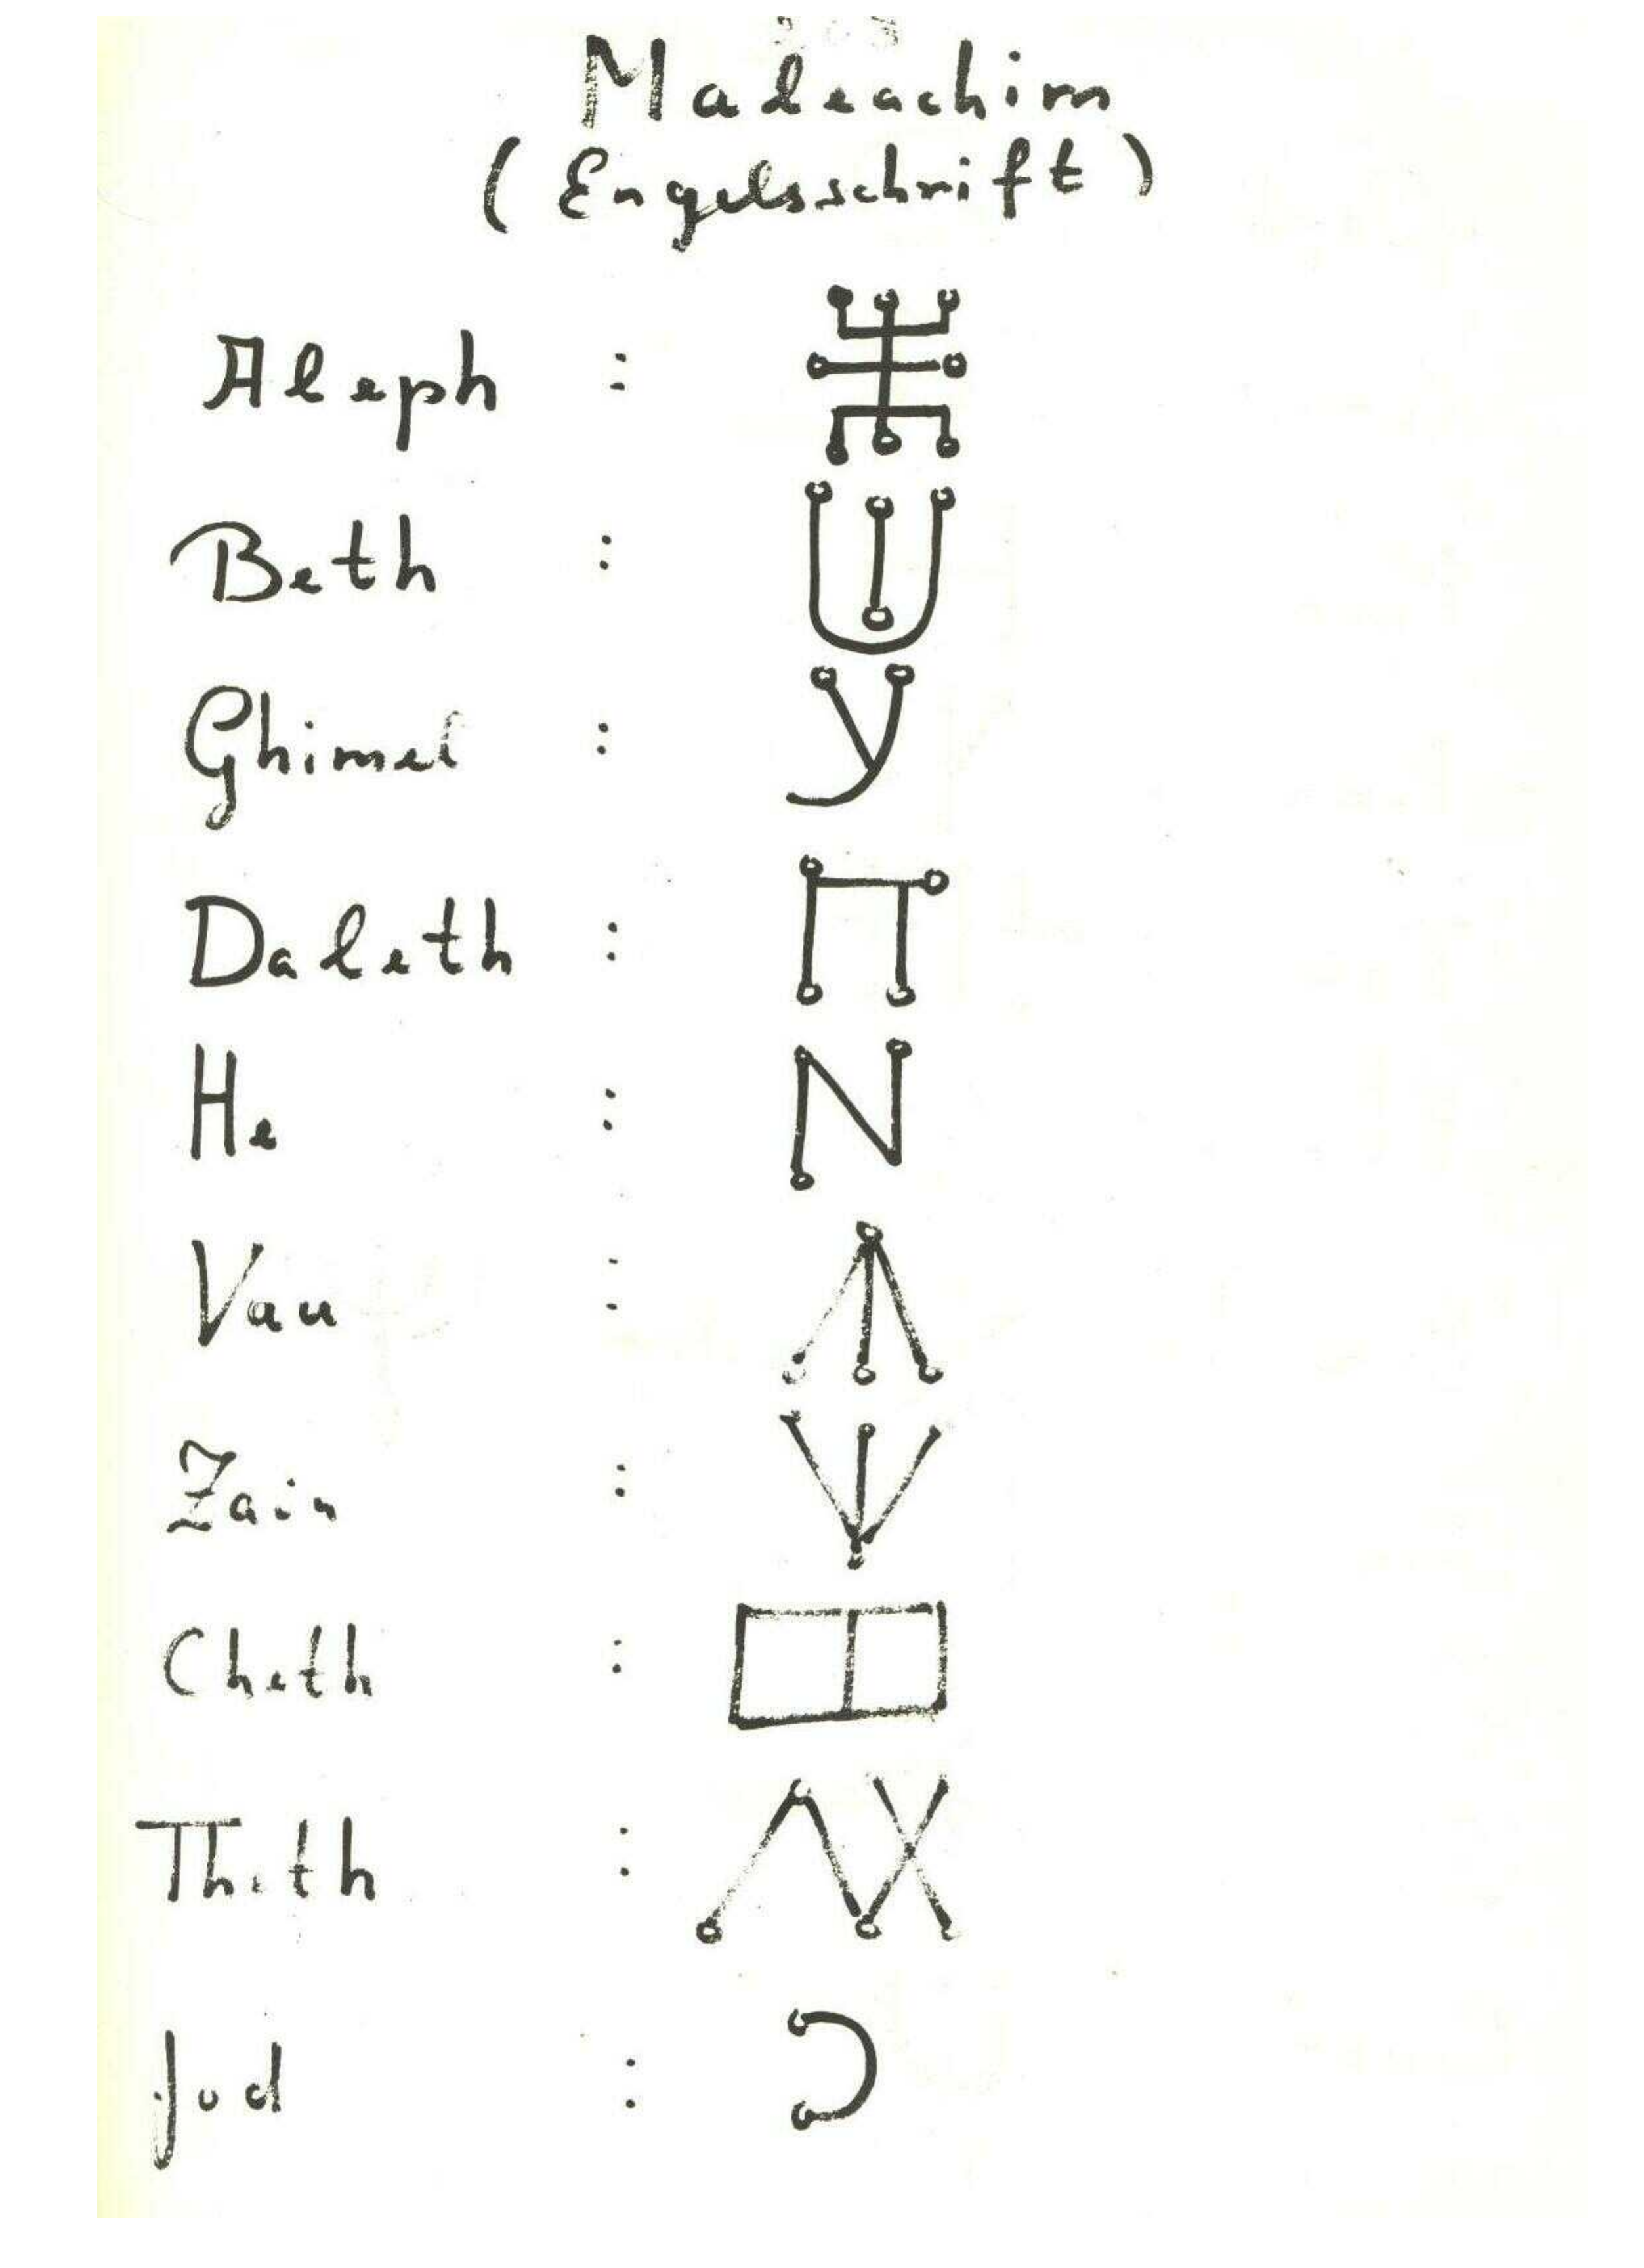 Maleachim
(Engelsschrift)
Aleph :
Beth :
Ghimel :
Daleth :
He :
Vau :
Zain :
Cheth :
Theth :
Jod :